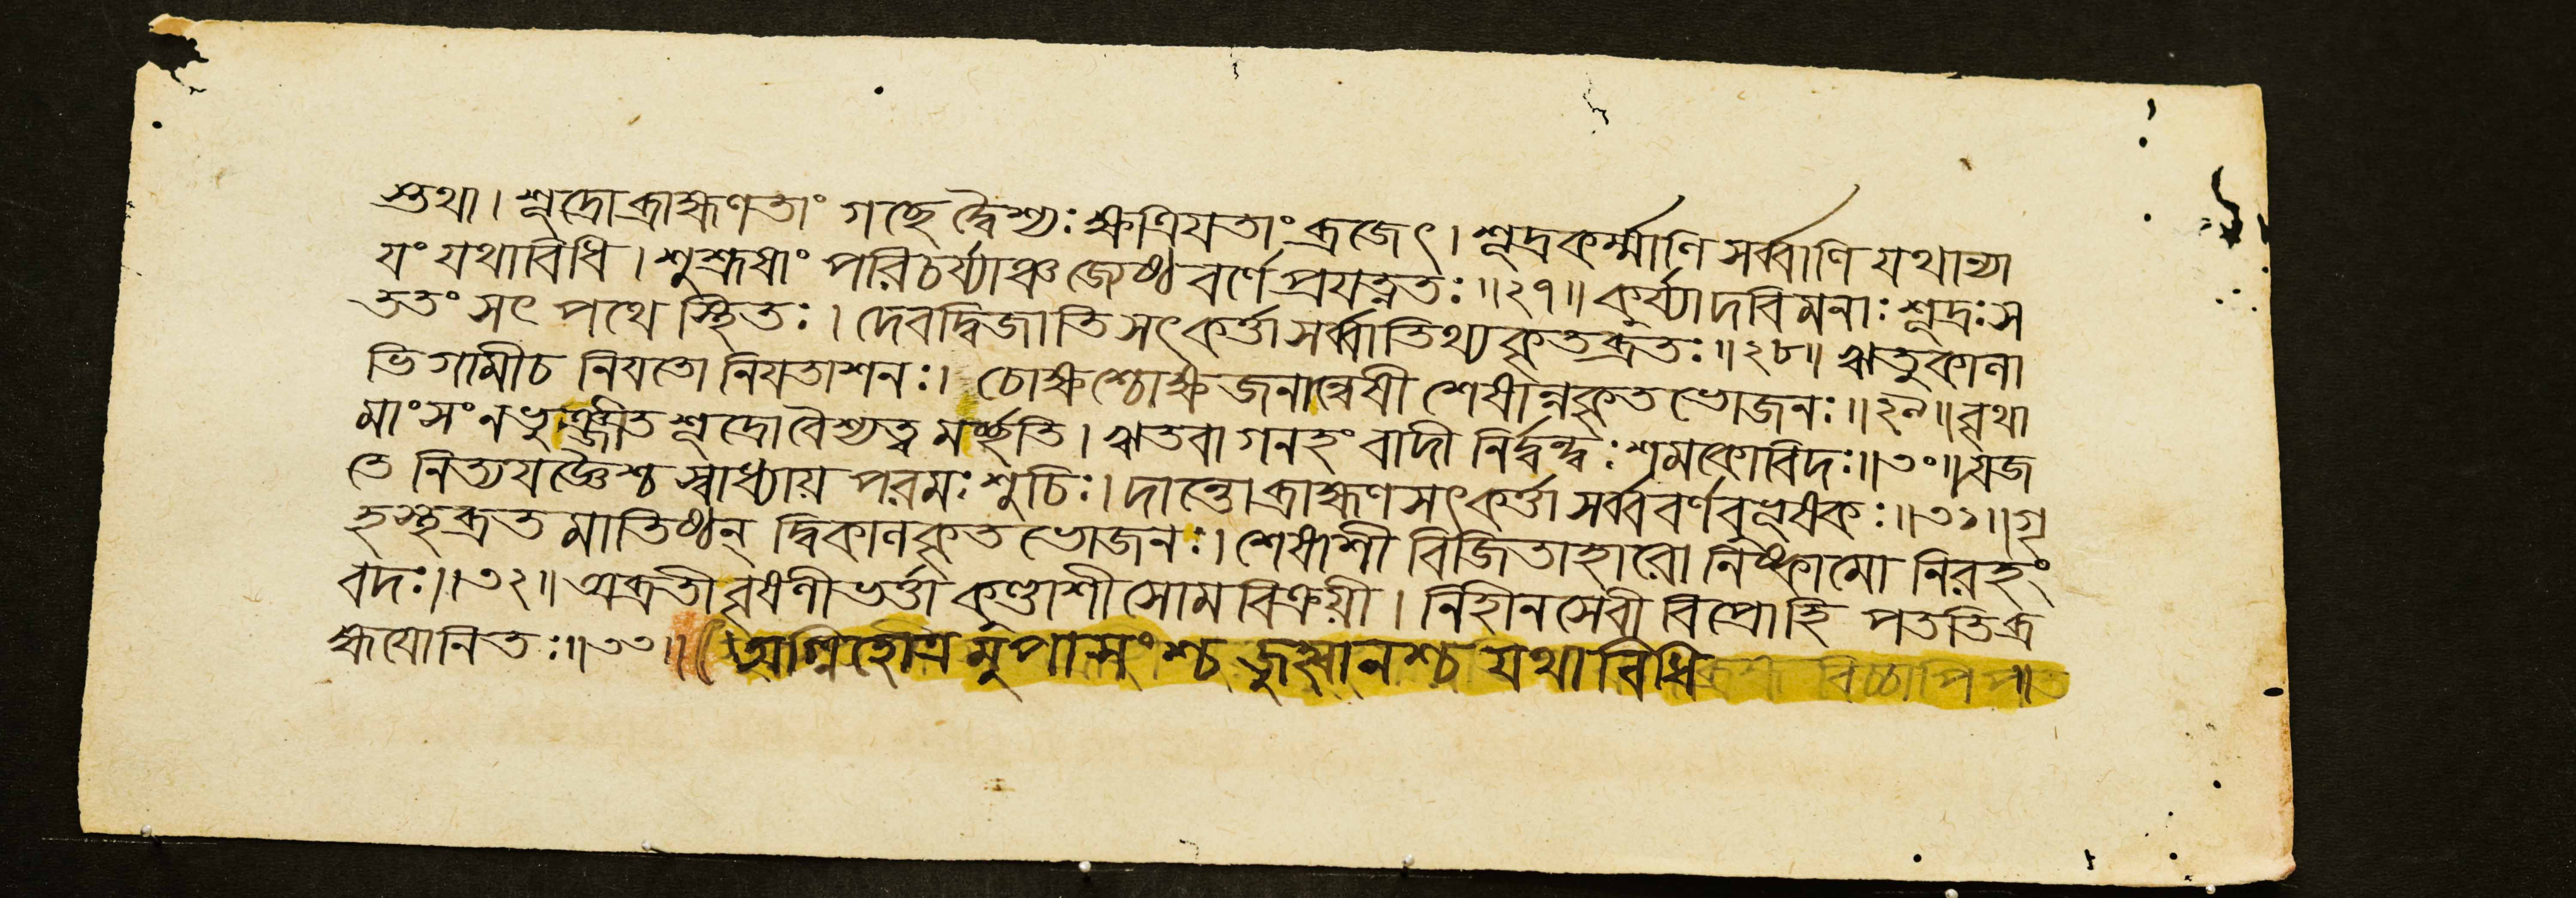 স্তথা। শূদ্রোব্রাহ্মণতাং গছেদ্বৈশ্যঃ ক্ষত্রিযতাং ব্রজেৎ। শূদ্রকর্ম্মাণি সর্ব্বাণি যথান্যা
যং যথাবিধি। শুশ্রূষাং পরিচর্য্যাঞ্চ জ্যেষ্ঠবর্ণে প্রযত্নতঃ॥২৭॥ কুর্য্যাদবিমনাঃ শূদ্রঃ স
ততং সৎপথে স্থিতঃ। দেবদ্বিজাতিসৎকর্ত্তা সর্ব্বাতিথ্যকৃতব্রতঃ॥২৮॥ ঋতুকালা
ভিগামীচ নিযতো নিযতাশনঃ। চোক্ষশ্চোক্ষজনান্বেষী শেষান্নকৃতভোজনঃ॥২৯॥ বৃথা
মাংসং নভুঞ্জীত শূদ্রোবৈশ্যত্বমর্চ্ছতি। ঋতবাগনহংবাদী নির্দ্বন্দ্বঃ শমকোবিদঃ॥৩০॥ যজ
তে নিত্যযজ্ঞৈশ্চ স্বাধ্যায়পরমঃ শুচিঃ। দান্তোব্রাহ্মণসৎকর্ত্তা সর্ব্ববর্ণবুভূষকঃ॥৩১॥ গৃ
হস্থব্রতমাতিষ্ঠন্ দ্বিকালকৃতভোজনঃ। শেষাশী বিজিতাহারো নিষ্কামো নিরহং
বদঃ॥৩২॥ অব্রতী বৃষলীভর্ত্তা কুণ্ডাশী সোমবিক্রয়ী। নিহীনসেবী বিপ্রোহি পততি ব্র
হ্মযোনিতঃ॥৩৩॥ অগ্নিহোত্রমুপাসংশ্চ জুহ্বানশ্চ যথাবিধি